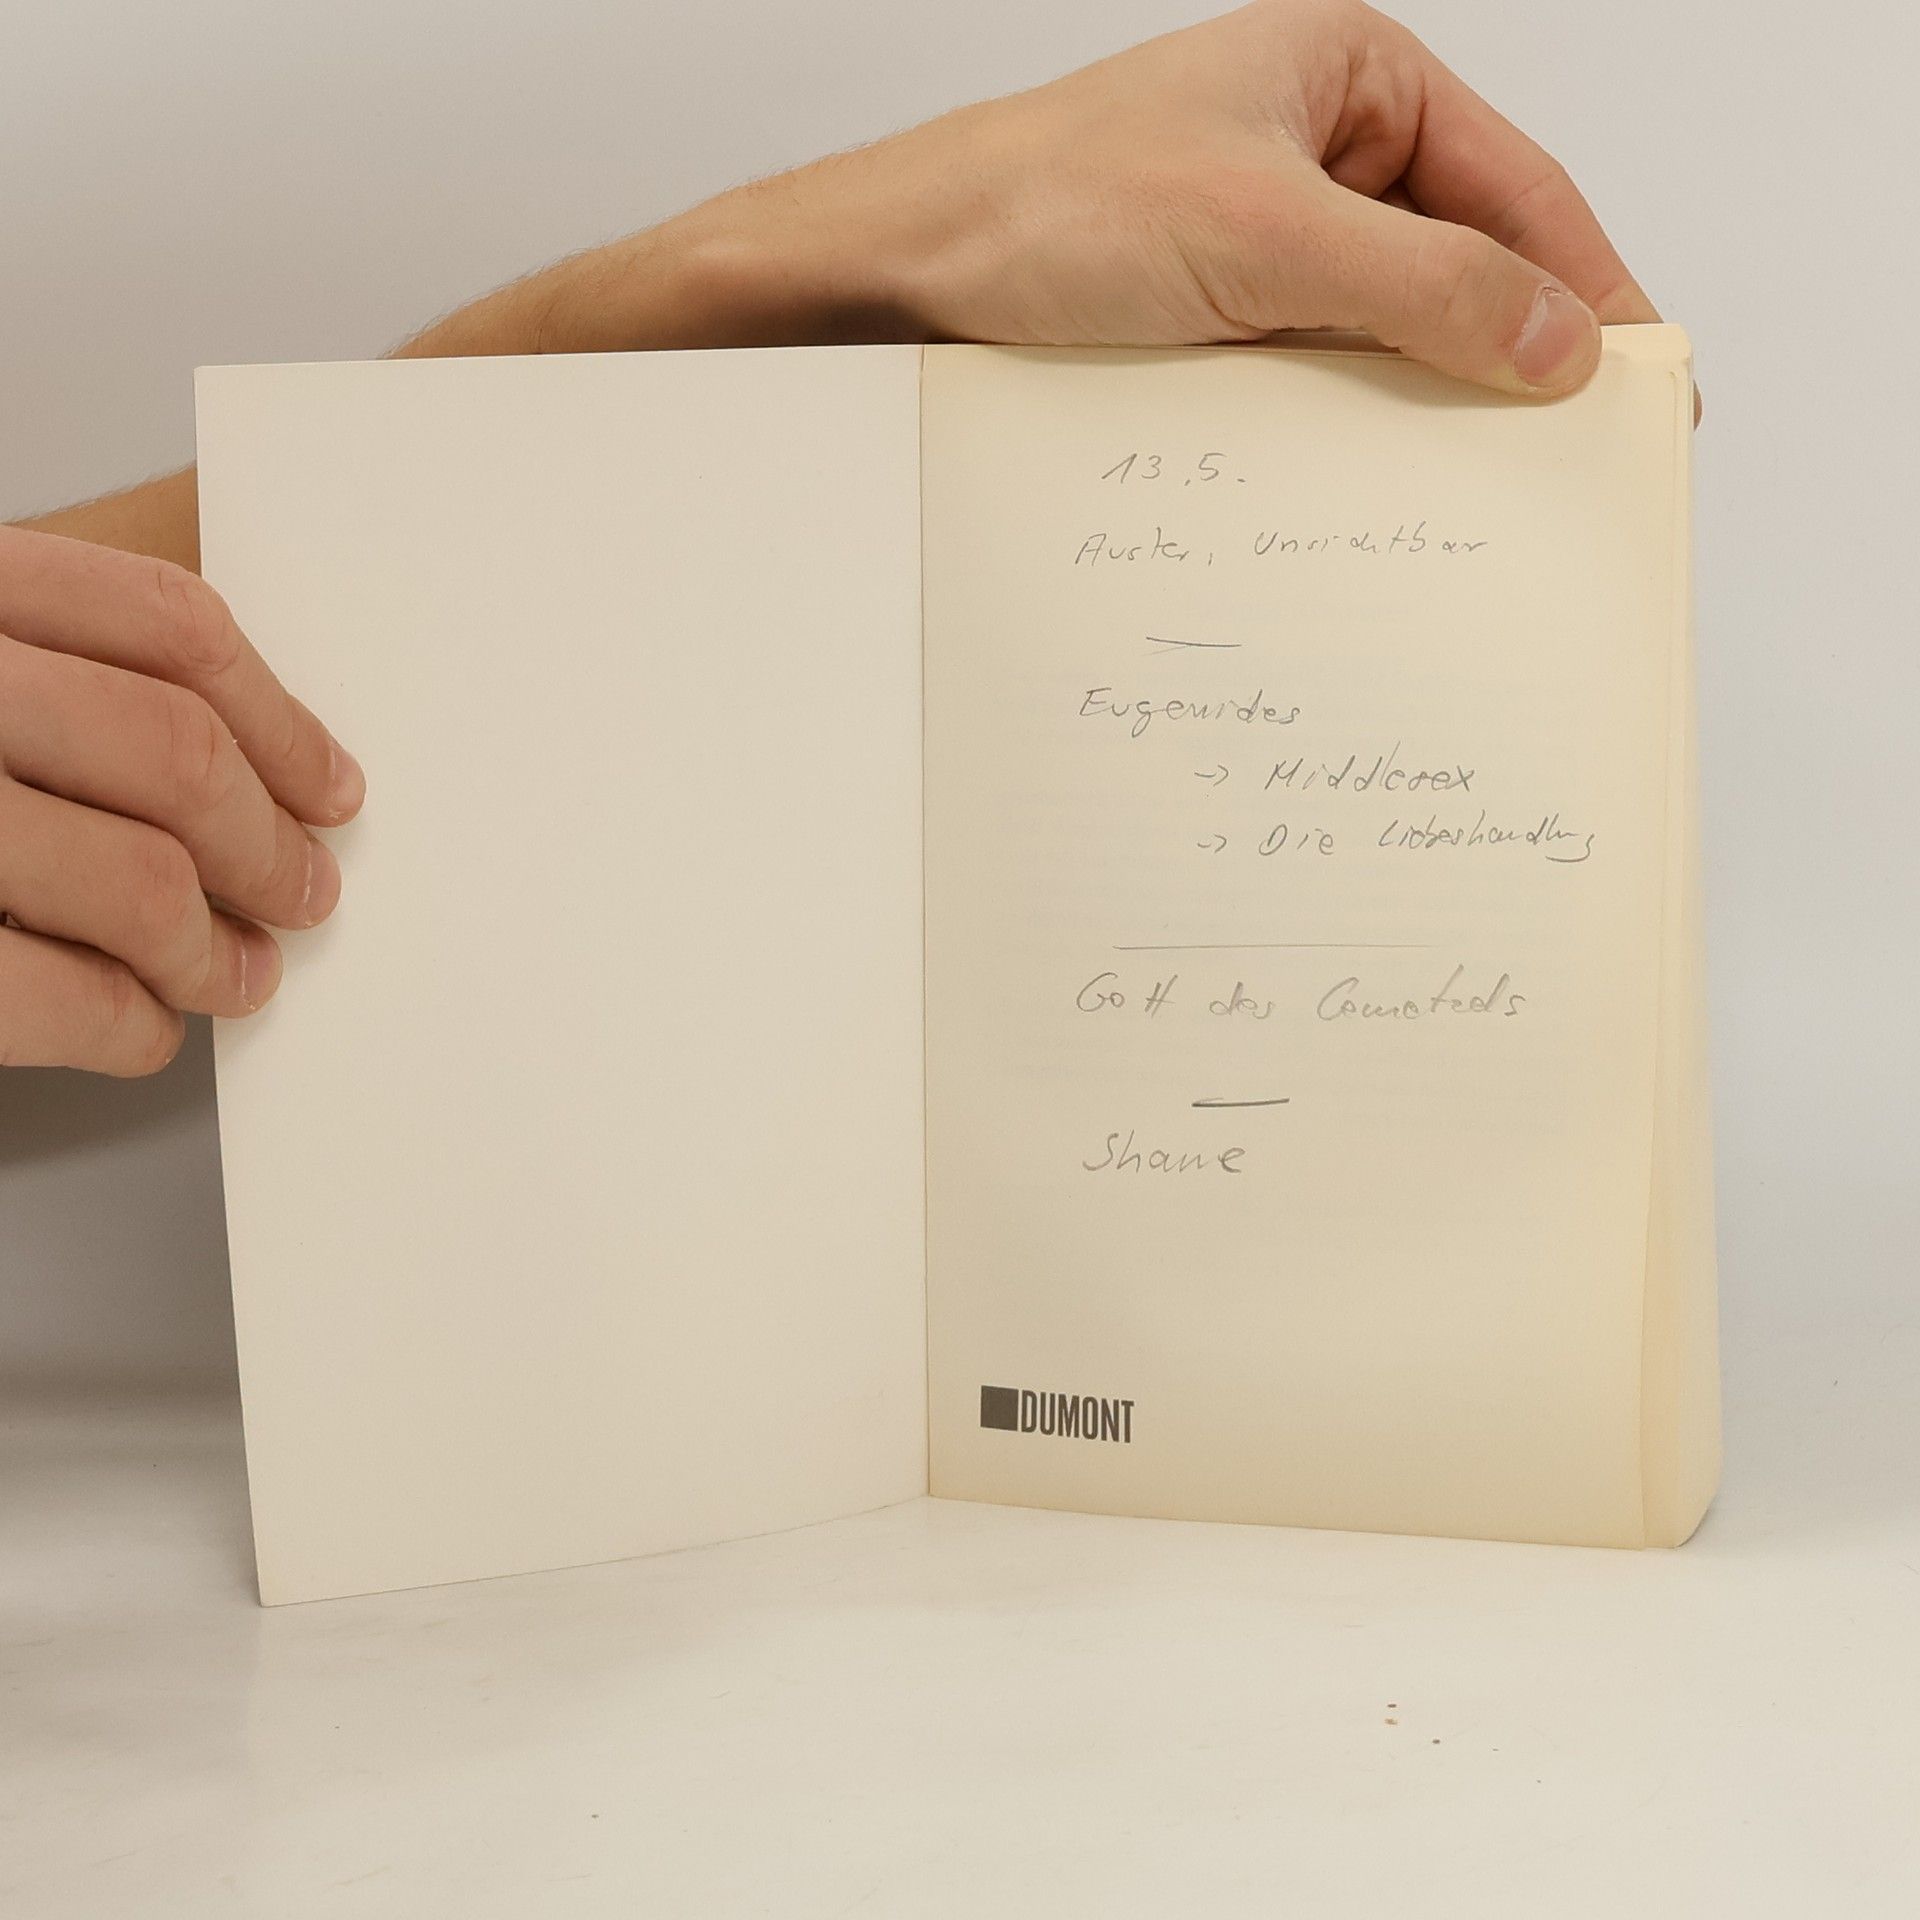 13.5.
Auster, Unsichtbar
Eugenides
-> Middlesex
-> Die Liebeshandlung
Gott des Gemetzels
Shame
DUMONT